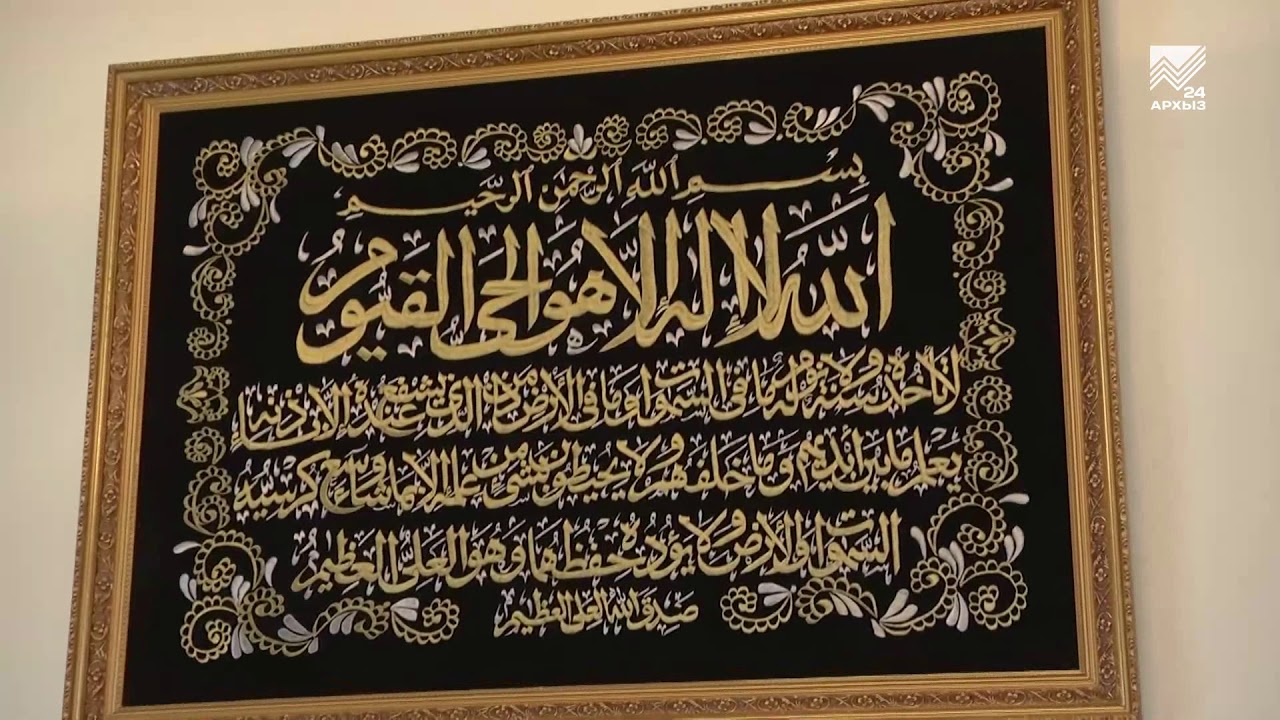 بِسْمِ ٱللَّهِ ٱلرَّحْمَٰنِ ٱلرَّحِيمِ
اَللّٰهُ لَا إِلٰهَ إِلَّا هُوَ الْحَيُّ الْقَيُّومُ
لَا تَأْخُذُهُ سِنَةٌ وَلَا نَوْمٌ لَهُ مَا فِي السَّمٰوَاتِ وَمَا فِي الْأَرْضِ مَنْ ذَا الَّذِي يَشْفَعُ عِنْدَهُ إِلَّا بِإِذْنِهِ
يَعْلَمُ مَا بَيْنَ أَيْدِيهِمْ وَمَا خَلْفَهُمْ وَلَا يُحِيطُونَ بِشَيْءٍ مِنْ عِلْمِهِ إِلَّا بِمَا شَاءَ وَسِعَ كُرْسِيُّهُ
السَّمٰوَاتِ وَالْأَرْضَ وَلَا يَؤُدُهُ حِفْظُهُمَا وَهُوَ الْعَلِيُّ الْعَظِيمُ
صَدَقَ اللّٰهُ الْعَلِيُّ الْعَظِيمُ
24
АРХЫЗ